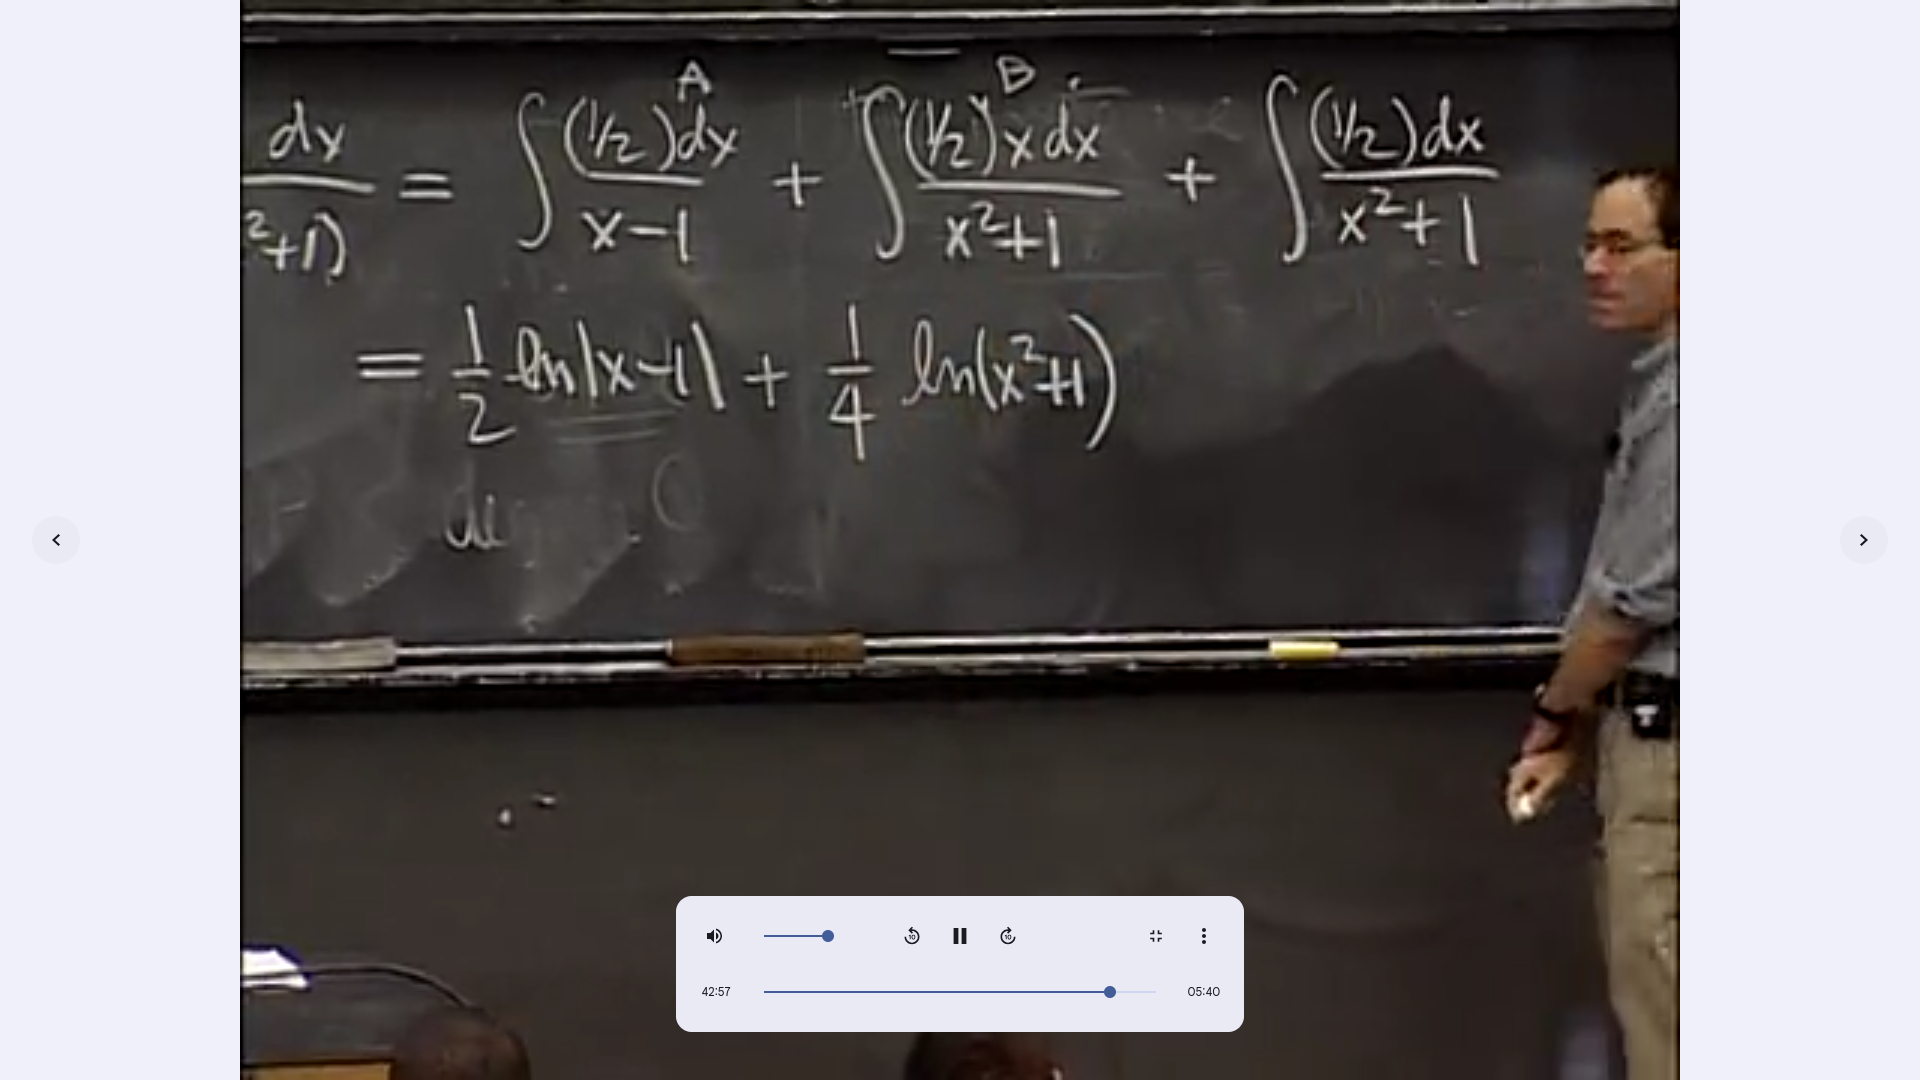 A B
dx/²+1) = ∫(1/2)dx/x-1 + ∫(1/2)x dx/x²+1 + ∫(1/2)dx/x²+1
= 1/2 ln|x-1| + 1/4 ln(x²+1)
10 10
42:57 05:40